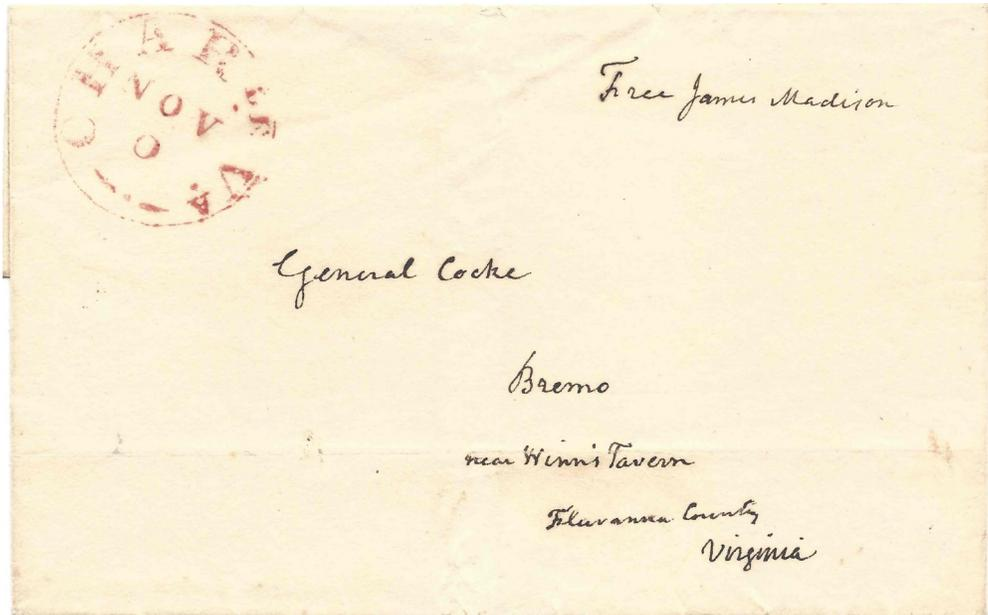 NOV
VA
Free James Madison
General Cocke
Bremo
near Winn's Tavern
Fluvanna County
Virginia